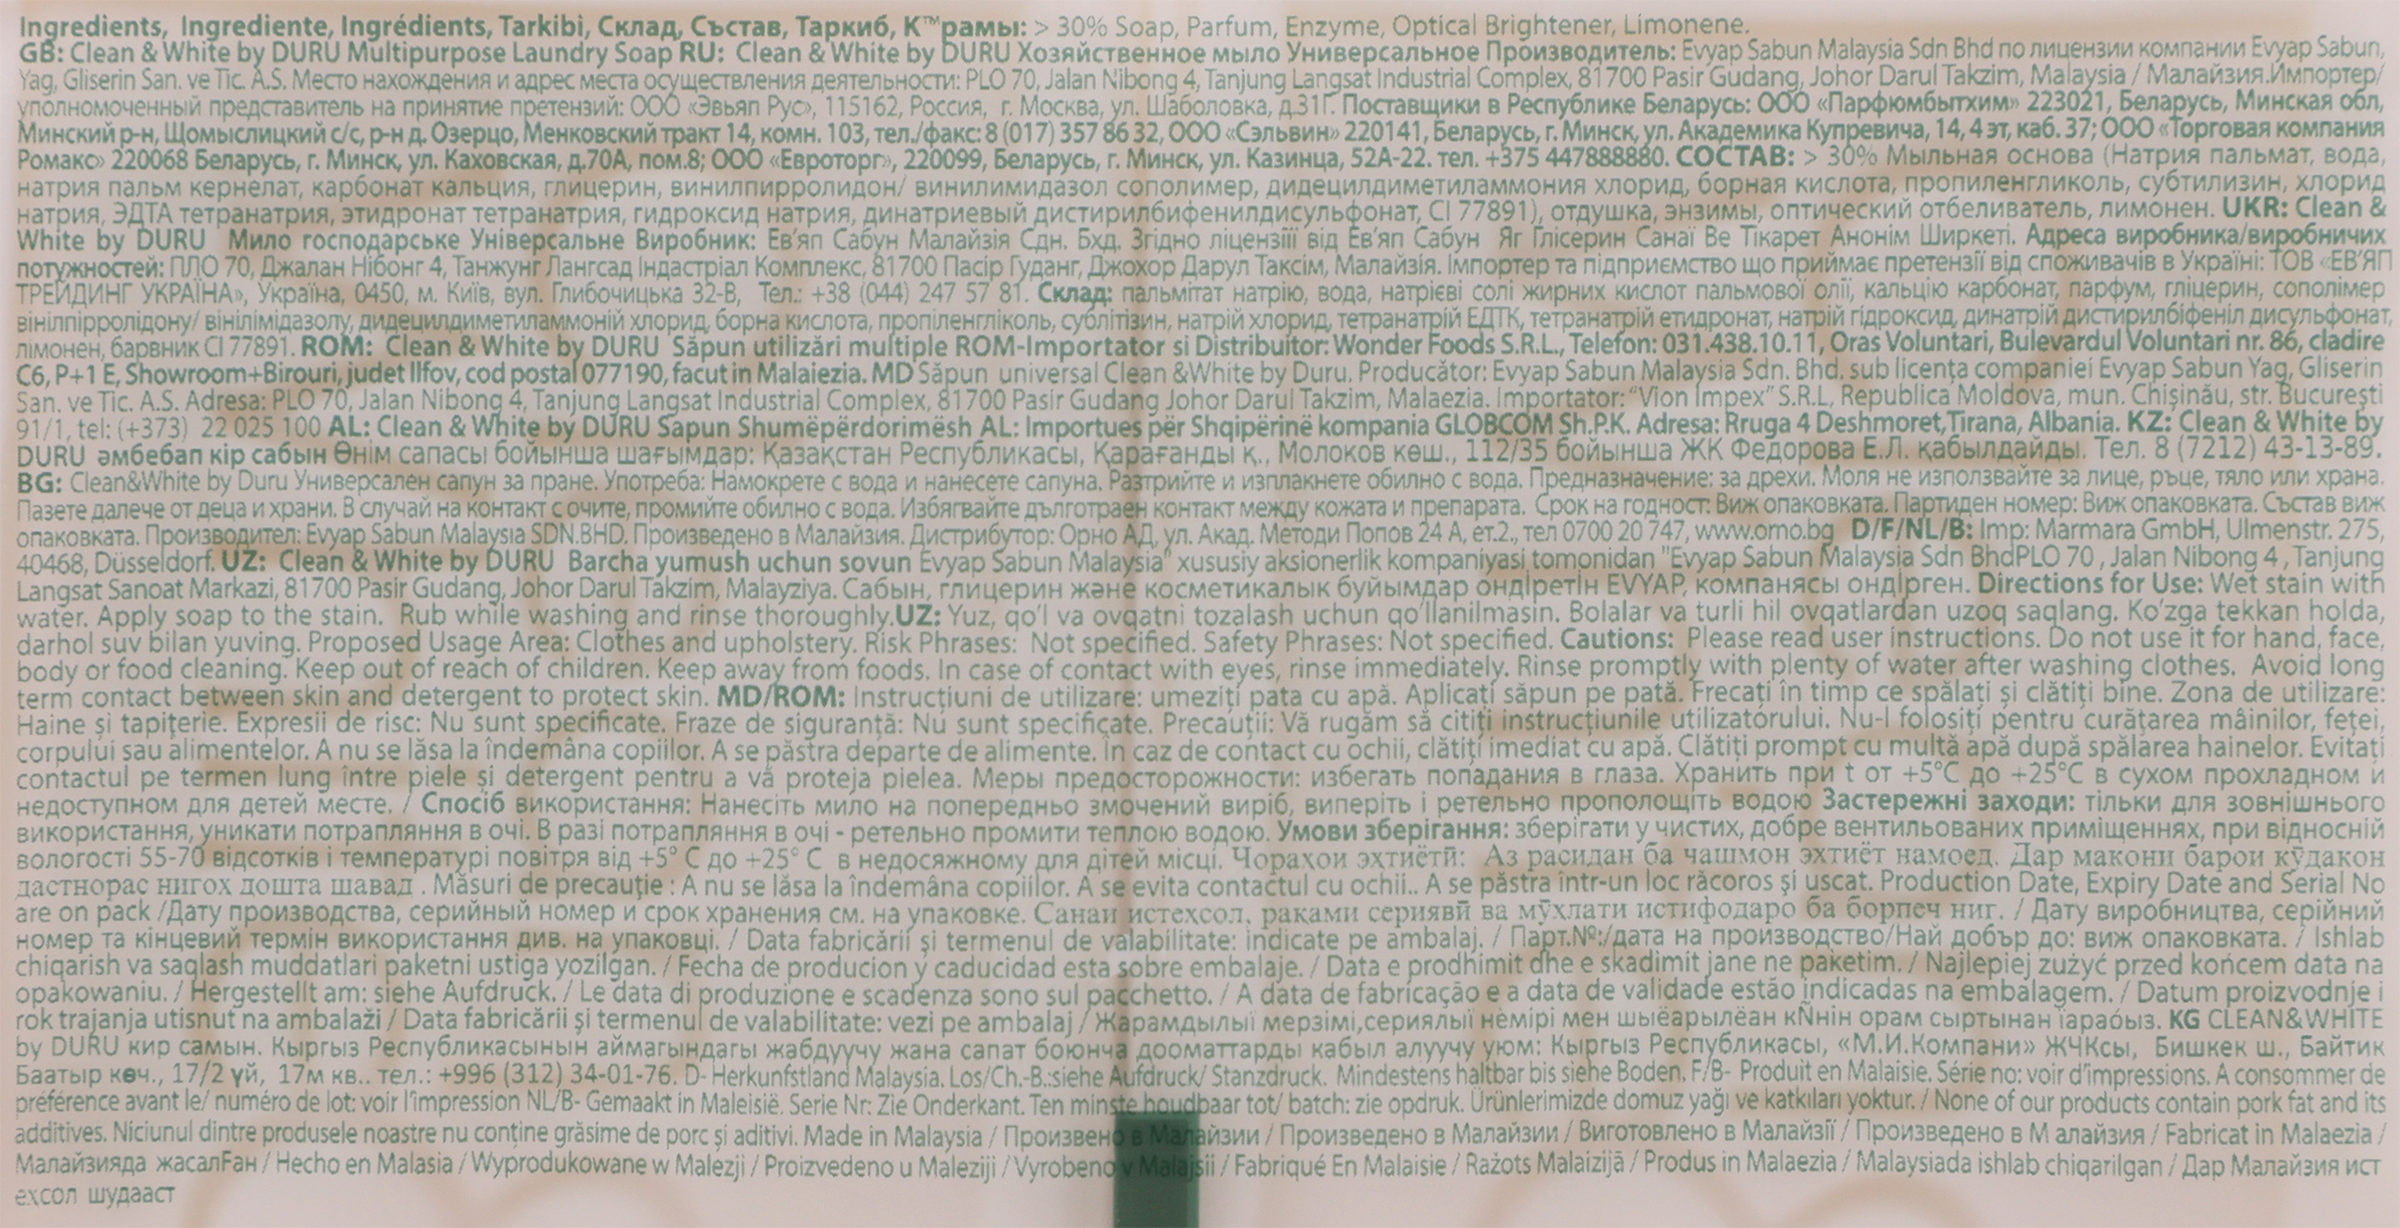 Ingredients, Ingrediente, Ingrédients, Tarkibi, Склад, Състав, Таркиб, К™рамы: > 30% Soap, Parfum, Enzyme, Optical Brightener, Limonene.
GB: Clean & White by DURU Multipurpose Laundry Soap RU: Clean & White by DURU Хозяйственное мыло Универсальное Производитель: Evyap Sabun Malaysia Sdn Bhd по лицензии компании Evyap Sabun,
Yag, Gliserin San. ve Tic. A.S. Место нахождения и адрес места осуществления деятельности: PLO 70, Jalan Nibong 4, Tanjung Langsat Industrial Complex, 81700 Pasir Gudang, Johor Darul Takzim, Malaysia / Малайзия.Импортер/
уполномоченный представитель на принятие претензий: ООО «Эвьяп Рус», 115162, Россия, г. Москва, ул. Шаболовка, д.31Г. Поставщики в Республике Беларусь: ООО «Парфюмбытхим» 223021, Беларусь, Минская обл,
Минский р-н, Щомыслицкий с/с, р-н д. Озерцо, Менковский тракт 14, комн. 103, тел./факс: 8 (017) 357 86 32, ООО «Сэльвин» 220141, Беларусь, г. Минск, ул. Академика Купревича, 14, 4 эт, каб. 37; ООО «Торговая компания
Ромакс» 220068 Беларусь, г. Минск, ул. Каховская, д.70А, пом.8; ООО «Евроторг», 220099, Беларусь, г. Минск, ул. Казинца, 52А-22. тел. +375 447888880. СОСТАВ: > 30% Мыльная основа (Натрия пальмат, вода,
натрия пальм кернелат, карбонат кальция, глицерин, винилпирролидон/ винилимидазол сополимер, дидецилдиметиламмония хлорид, борная кислота, пропиленгликоль, субтилизин, хлорид
натрия, ЭДТА тетранатрия, этидронат тетранатрия, гидроксид натрия, динатриевый дистирилбифенилдисульфонат, CI 77891), отдушка, энзимы, оптический отбеливатель, лимонен. UKR: Clean &
White by DURU Мило господарське Універсальне Виробник: Ев'яп Сабун Малайзія Сдн. Бхд. Згідно ліцензіїї від Ев'яп Сабун Яг Глісерин Санаї Ве Тікарет Анонім Ширкеті. Адреса виробника/виробничих
потужностей: ПЛО 70, Джалан Нібонг 4, Танжунг Лангсад Індастріал Комплекс, 81700 Пасір Гуданг, Джохор Дарул Таксім, Малайзія. Імпортер та підприємство що приймає претензії від споживачів в Україні: ТОВ «ЕВ'ЯП
ТРЕЙДИНГ УКРАЇНА», Україна, 0450, м. Київ, вул. Глибочицька 32-В, Тел.: +38 (044) 247 57 81. Склад: пальмітат натрію, вода, натрієві солі жирних кислот пальмової олії, кальцію карбонат, парфум, гліцерин, сополімер
вінілпірролідону/ вінілімідазолу, дидецилдиметиламмоній хлорид, борна кислота, пропіленгліколь, сублітізин, натрій хлорид, тетранатрій ЕДТК, тетранатрій етидронат, натрій гідроксид, динатрій дистирилбіфеніл дисульфонат,
лімонен, барвник CI 77891. ROM: Clean & White by DURU Săpun utilizări multiple ROM-Importator si Distribuitor: Wonder Foods S.R.L., Telefon: 031.438.10.11, Oras Voluntari, Bulevardul Voluntari nr. 86, cladire
C6, P+1 E, Showroom+Birouri, judet Ilfov, cod postal 077190, facut in Malaiezia. MD Săpun universal Clean &White by Duru. Producător: Evyap Sabun Malaysia Sdn. Bhd. sub licența companiei Evyap Sabun Yag, Gliserin
San. ve Tic. A.S. Adresa: PLO 70, Jalan Nibong 4, Tanjung Langsat Industrial Complex, 81700 Pasir Gudang Johor Darul Takzim, Malaezia. Importator: "Vion Impex" S.R.L, Republica Moldova, mun. Chișinău, str. București
91/1, tel: (+373) 22 025 100 AL: Clean & White by DURU Sapun Shumëpërdorimësh AL: Importues për Shqipërinë kompania GLOBCOM Sh.P.K. Adresa: Rruga 4 Deshmoret,Tirana, Albania. KZ: Clean & White by
DURU әмбебап кір сабын Өнім сапасы бойынша шағымдар: Қазақстан Республикасы, Қарағанды қ., Молоков көш., 112/35 бойынша ЖК Федорова Е.Л. қабылдайды. Тел. 8 (7212) 43-13-89.
BG: Clean&White by Duru Универсален сапун за пране. Употреба: Намокрете с вода и нанесете сапуна. Разтрийте и изплакнете обилно с вода. Предназначение: за дрехи. Моля не използвайте за лице, ръце, тяло или храна.
Пазете далече от деца и храни. В случай на контакт с очите, промийте обилно с вода. Избягвайте дълготраен контакт между кожата и препарата. Срок на годност: Виж опаковката. Партиден номер: Виж опаковката. Състав виж
опаковката. Производител: Evyap Sabun Malaysia SDN.BHD. Произведено в Малайзия. Дистрибутор: Орно АД, ул. Акад. Методи Попов 24 А, ет.2., тел 0700 20 747, www.omo.bg D/F/NL/B: Imp: Marmara GmbH, Ulmenstr. 275,
40468, Düsseldorf. UZ: Clean & White by DURU Barcha yumush uchun sovun Evyap Sabun Malaysia" xususiy aksionerlik kompaniyasi tomonidan "Evyap Sabun Malaysia Sdn BhdPLO 70 , Jalan Nibong 4 , Tanjung
Langsat Sanoat Markazi, 81700 Pasir Gudang, Johor Darul Takzim, Malayziya. Сабын, глицерин және косметикалык буйымдар өндіретін EVYAP, компанясы өндірген. Directions for Use: Wet stain with
water. Apply soap to the stain. Rub while washing and rinse thoroughly.UZ: Yuz, qo'l va ovqatni tozalash uchun qo'llanilmasin. Bolalar va turli hil ovqatlardan uzoq saqlang. Ko'zga tekkan holda,
darhol suv bilan yuving. Proposed Usage Area: Clothes and upholstery. Risk Phrases: Not specified. Safety Phrases: Not specified. Cautions: Please read user instructions. Do not use it for hand, face,
body or food cleaning. Keep out of reach of children. Keep away from foods. In case of contact with eyes, rinse immediately. Rinse promptly with plenty of water after washing clothes. Avoid long
term contact between skin and detergent to protect skin. MD/ROM: Instrucțiuni de utilizare: umeziți pata cu apă. Aplicați săpun pe pată. Frecați în timp ce spălați și clătiți bine. Zona de utilizare:
Haine și tapițerie. Expresii de risc: Nu sunt specificate. Fraze de siguranță: Nu sunt specificate. Precauții: Vă rugăm să citiți instrucțiunile utilizatorului. Nu-l folosiți pentru curățarea mâinilor, feței,
corpului sau alimentelor. A nu se lăsa la îndemâna copiilor. A se păstra departe de alimente. În caz de contact cu ochii, clătiți imediat cu apă. Clătiți prompt cu multă apă după spălarea hainelor. Evitați
contactul pe termen lung între piele și detergent pentru a vă proteja pielea. Меры предосторожности: избегать попадания в глаза. Хранить при t от +5°С до +25°С в сухом прохладном и
недоступном для детей месте. / Спосіб використання: Нанесіть мило на попередньо змочений виріб, виперіть і ретельно прополощіть водою Застережні заходи: тільки для зовнішнього
використання, уникати потрапляння в очі. В разі потрапляння в очі - ретельно промити теплою водою. Умови зберігання: зберігати у чистих, добре вентильованих приміщеннях, при відносній
вологості 55-70 відсотків і температурі повітря від +5° С до +25° С в недосяжному для дітей місці. Чораҳои эҳтиётӣ: Аз расидан ба чашмон эҳтиёт намоед. Дар макони барои кӯдакон
дастнорас нигох дошта шавад . Măsuri de precauție : A nu se lăsa la îndemâna copiilor. A se evita contactul cu ochii.. A se păstra într-un loc răcoros și uscat. Production Date, Expiry Date and Serial No
are on pack /Дату производства, серийный номер и срок хранения см. на упаковке. Санаи истехсол, раками сериявӣ ва мӯхлати истифодаро ба борпеч ниг. / Дату виробництва, серійний
номер та кінцевий термін використання див. на упаковці. / Data fabricării și termenul de valabilitate: indicate pe ambalaj. / Парт.№:/дата на производство/Най добър до: виж опаковката. / Ishlab
chiqarish va saqlash muddatlari paketni ustiga yozilgan. / Fecha de producion y caducidad esta sobre embalaje. / Data e prodhimit dhe e skadimit jane ne paketim. / Najlepiej zużyć przed końcem data na
opakowaniu. / Hergestellt am: siehe Aufdruck. / Le data di produzione e scadenza sono sul pacchetto. / A data de fabricação e a data de validade estão indicadas na embalagem. / Datum proizvodnje i
rok trajanja utisnut na ambalaži / Data fabricării și termenul de valabilitate: vezi pe ambalaj / Жарамдылыї мерзімі,сериялыї нѐмірі мен шыёарылёан кÑнін орам сыртынан їараóыз. KG CLEAN&WHITE
by DURU кир самын. Кыргыз Республикасынын аймагындагы жабдуучу жана сапат боюнча дооматтарды кабыл алуучу уюм: Кыргыз Республикасы, «М.И.Компани» ЖЧКсы, Бишкек ш., Байтик
Баатыр көч., 17/2 үй, 17м кв.. тел.: +996 (312) 34-01-76. D- Herkunfstland Malaysia. Los/Ch.-B.:siehe Aufdruck/ Stanzdruck. Mindestens haltbar bis siehe Boden. F/B- Produit en Malaisie. Série no: voir d'impressions. A consommer de
préférence avant le/ numéro de lot: voir l'impression NL/B- Gemaakt in Maleisië. Serie Nr: Zie Onderkant. Ten minste houdbaar tot/ batch: zie opdruk. Ürünlerimizde domuz yağı ve katkıları yoktur. / None of our products contain pork fat and its
additives. Niciunul dintre produsele noastre nu conține grăsime de porc și aditivi. Made in Malaysia / Произвено в Малайзии / Произведено в Малайзии / Виготовлено в Малайзії / Произведено в М алайзия / Fabricat in Malaezia /
Малайзияда жасалFан / Hecho en Malasia / Wyprodukowane w Malezji / Proizvedeno u Maleziji / Vyrobeno v Malajsii / Fabriqué En Malaisie / Ražots Malaizijā / Produs in Malaezia / Malaysiada ishlab chiqarilgan / Дар Малайзия ист
ехсол шудааст